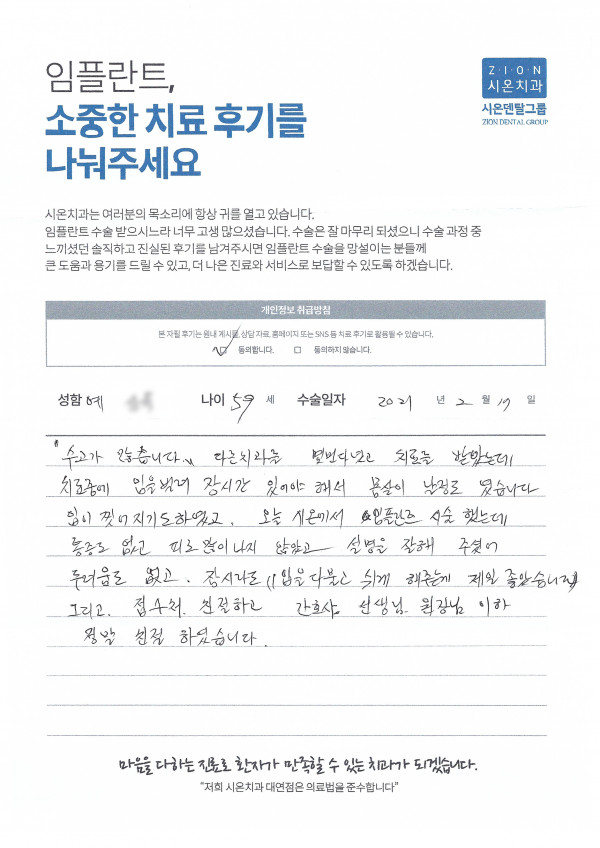 임플란트,
소중한 치료 후기를
나눠주세요
Z·I·O·N
시온치과
시온덴탈그룹
ZION DENTAL GROUP
시온치과는 여러분의 목소리에 항상 귀를 열고 있습니다.
임플란트 수술 받으시느라 너무 고생 많으셨습니다. 수술은 잘 마무리 되셨으니 수술 과정 중
느끼셨던 솔직하고 진실된 후기를 남겨주시면 임플란트 수술을 망설이는 분들께
큰 도움과 용기를 드릴 수 있고, 더 나은 진료와 서비스로 보답할 수 있도록 하겠습니다.
개인정보 취급방침
본 자필 후기는 원내 게시물, 상담 자료, 홈페이지 또는 SNS 등 치료 후기로 활용될 수 있습니다.
동의합니다. 동의하지 않습니다.
성함 예 나이 59 세 수술일자 2021 년 2 월 17 일
수고가 많습니다. 다른치과를 몇번다녔고 치료를 받았는데
치료중에 입을벌려 장시간 있어야 해서 몸살이 날정도 였습니다
입이 찢어지기도하였고, 오늘 시온에서 임플란트 시술 했는데
통증도 없고 피도 많이나지 않았고 설명을 잘해 주셨어
두려움도 없고, 잠시나도 입을다물고 쉬게 해주는게 제일 좋았습니다
그리고, 접수처 친절하고 간호사 선생님, 원장님 이하
정말 친절 하였습니다.
마음을 다하는 진료로 환자가 만족할 수 있는 치과가 되겠습니다.
“저희 시온치과 대연점은 의료법을 준수합니다”